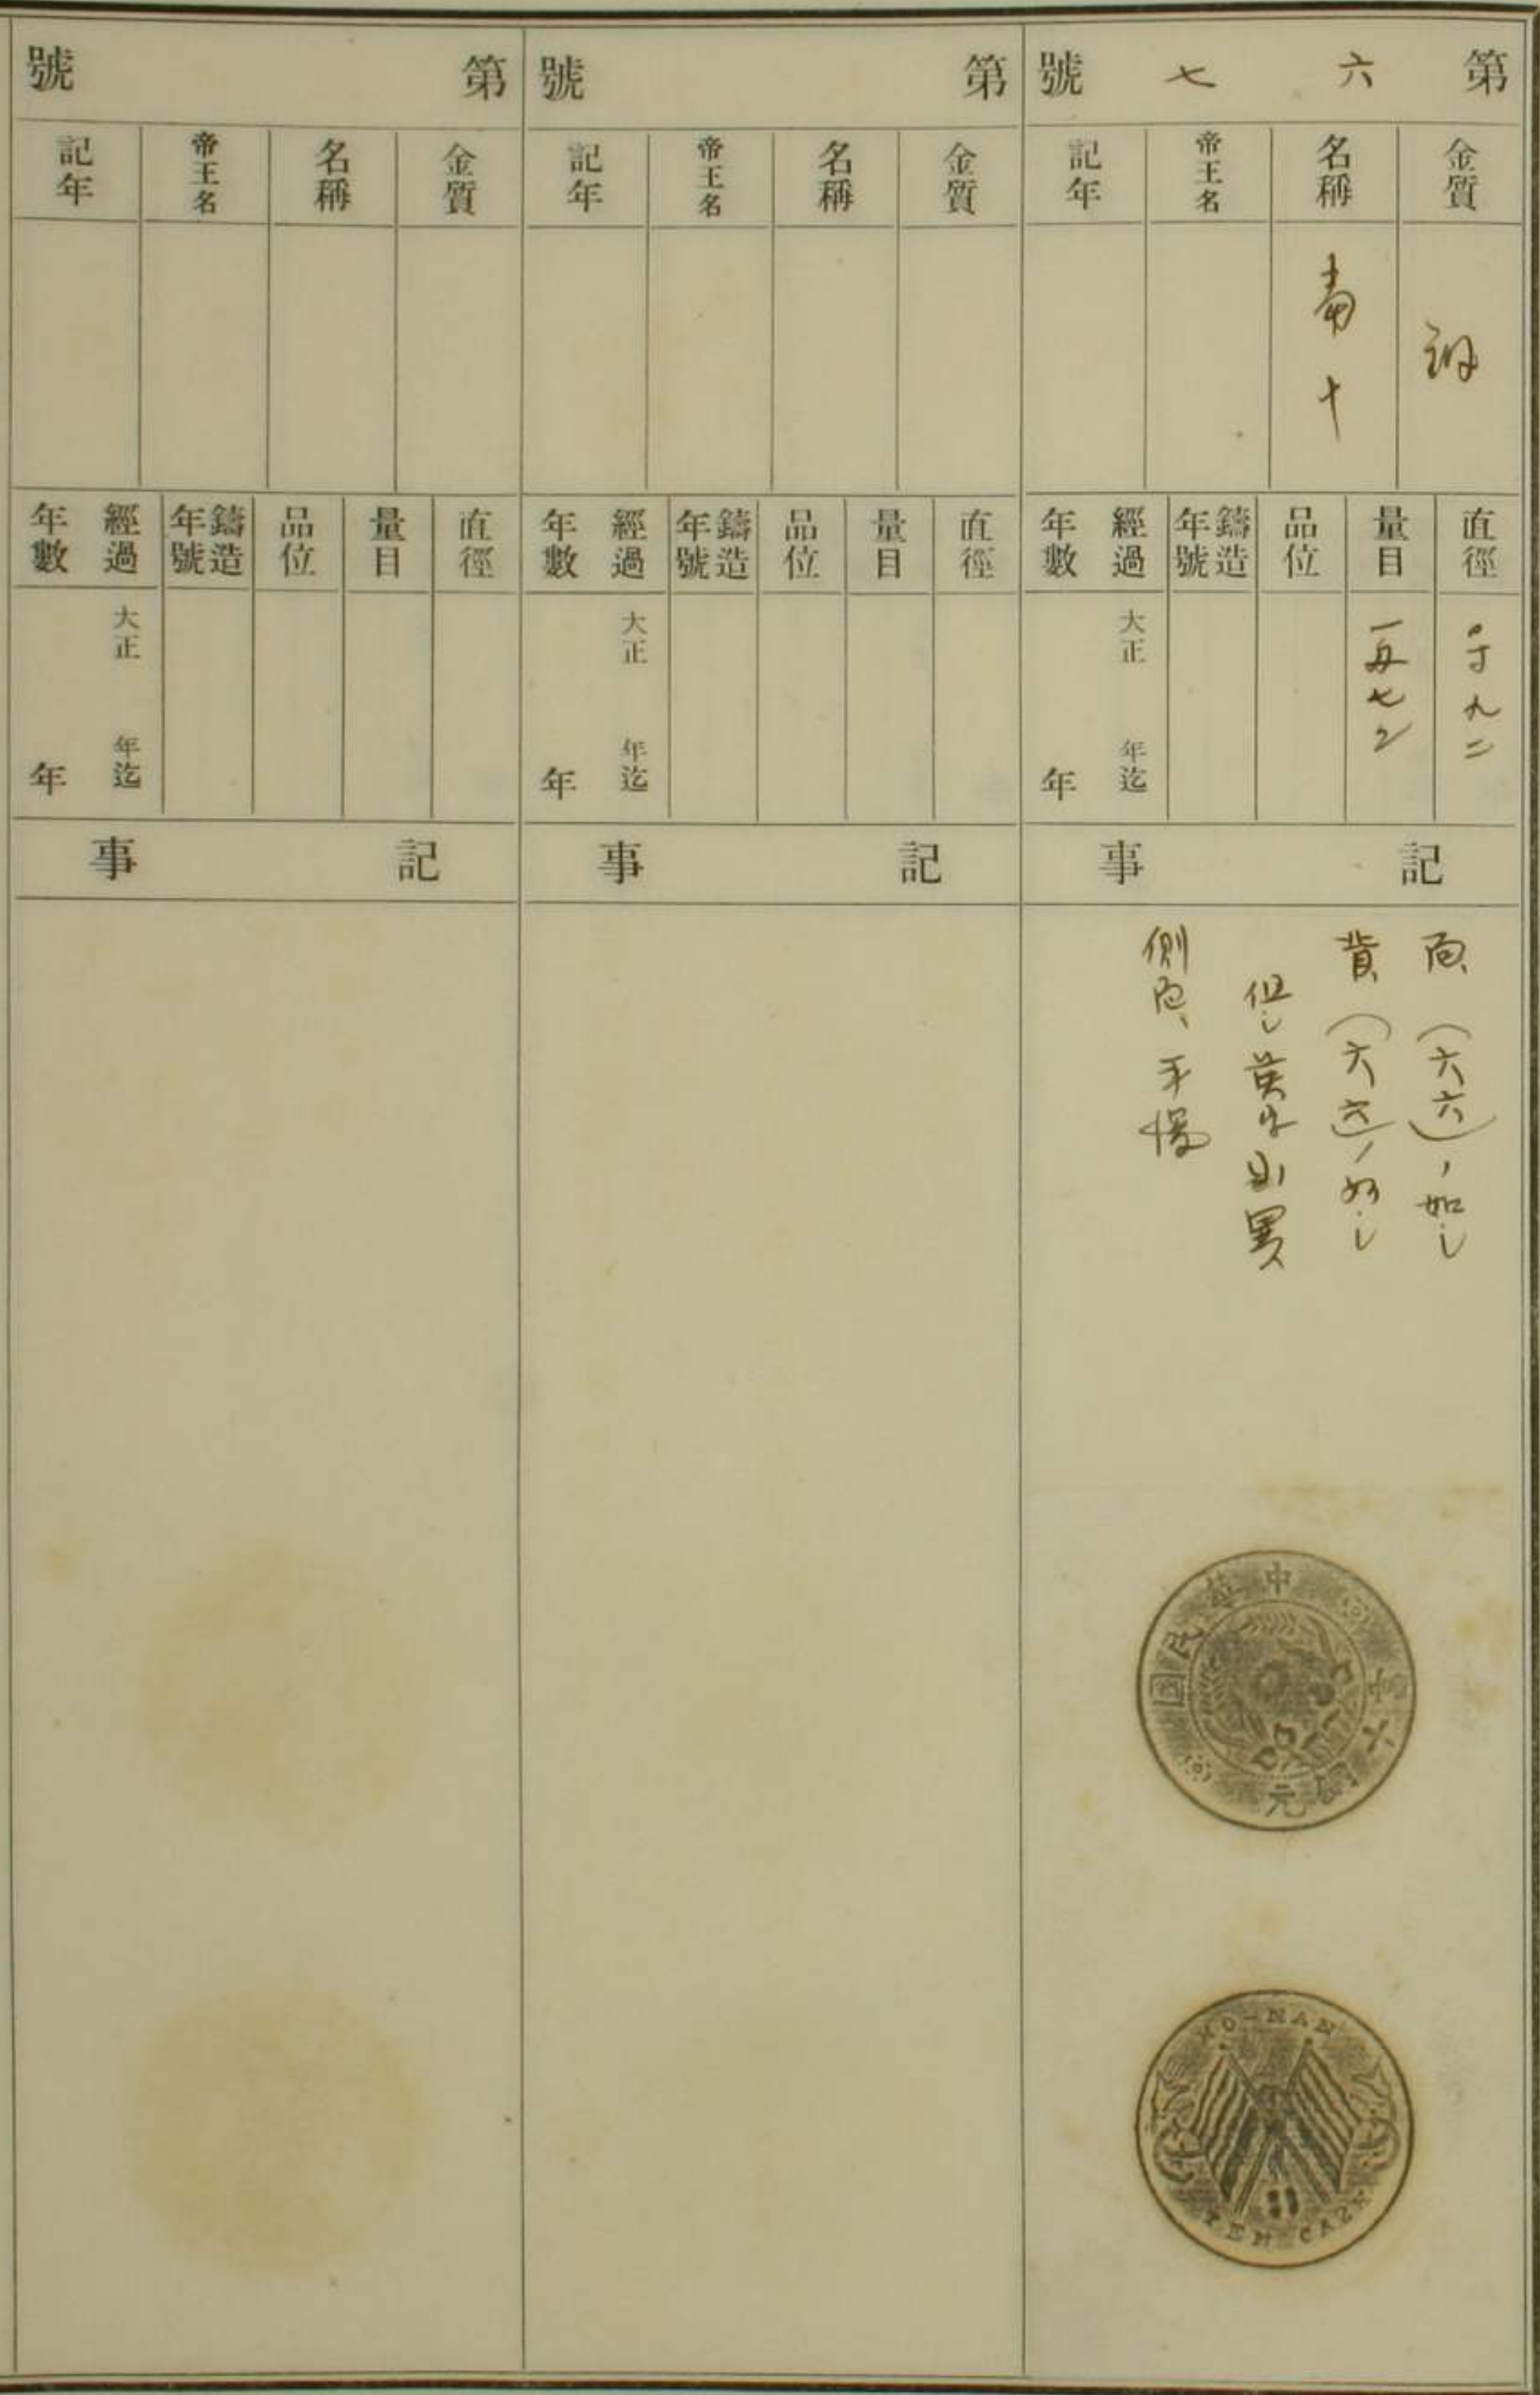 第六七號
金質
銅
名稱
當十
帝王名
記年
直徑
〇寸九二
量目
一匁七二
品位
鑄造年號
經過年數
大正 年迄
年
記事
面、(六六)ノ如シ
背、(六六)ノ如シ
但シ英字
側面、平慢
中華民國
當十銅元
HO-NAN
TEN CASH
第 號
金質
名稱
帝王名
記年
直徑
量目
品位
鑄造年號
經過年數
大正 年迄
年
記事
第 號
金質
名稱
帝王名
記年
直徑
量目
品位
鑄造年號
經過年數
大正 年迄
年
記事